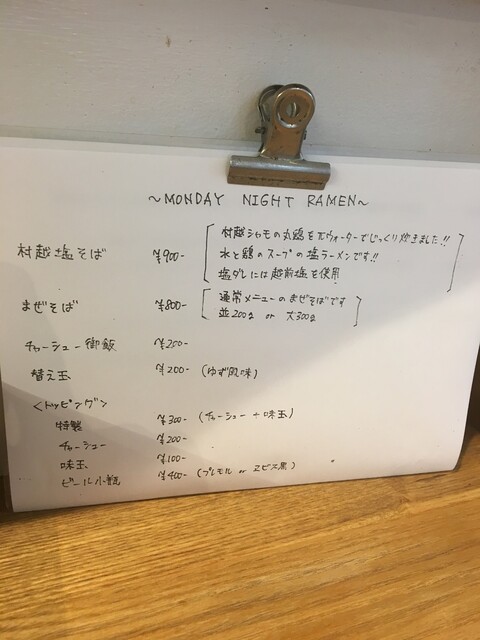 ~MONDAY NIGHT RAMEN~
村越塩そば ¥900-
村越シャモの丸鶏をπウォーターでじっくり炊きました!!
水と鶏のスープの塩ラーメンです!!
塩ダレには越前塩を使用
まぜそば ¥800-
通常メニューのまぜそばです
並200g or 大300g
チャーシュー御飯 ¥200-
替え玉 ¥200- (ゆず風味)
<トッピング>
特製 ¥300- (チャーシュー+味玉)
チャーシュー ¥200-
味玉 ¥100-
ビール小瓶 ¥400- (プレモル or ヱビス黒)